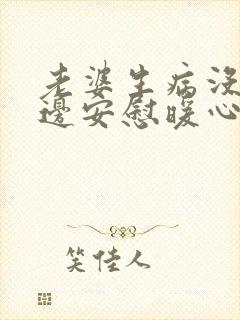 老婆生病没
边安慰暖心
笑佳人